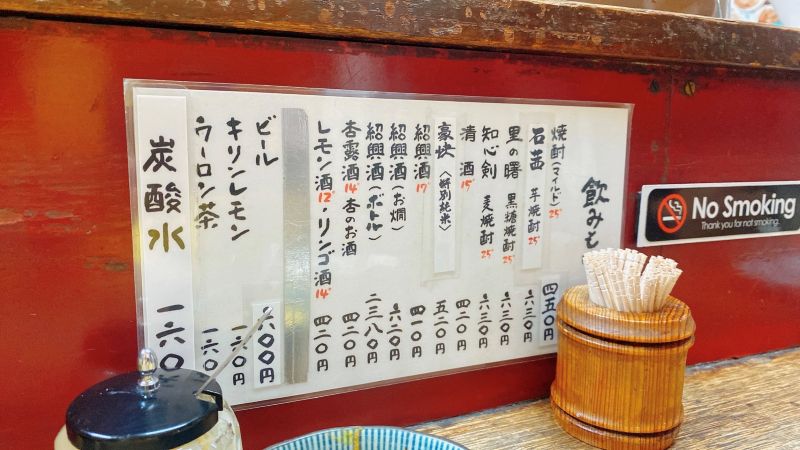 飲みも
焼酎(マイルド)25° 四五〇円
石茜 芋焼酎25° 六三〇円
里の曙 黒糖焼酎25° 六三〇円
知心剣 麦焼酎25° 六三〇円
清酒15° 四二〇円
豪快〈特別純米〉 五二〇円
紹興酒17° 四一〇円
紹興酒(お燗) 六二〇円
紹興酒(ボトル) 二三八〇円
杏露酒14° 杏のお酒 四二〇円
レモン酒12°・リンゴ酒14° 四二〇円
ビール 六〇〇円
キリンレモン 一六〇円
ウーロン茶 一六〇
炭酸水 一六〇
No Smoking
Thank you for not smoking.